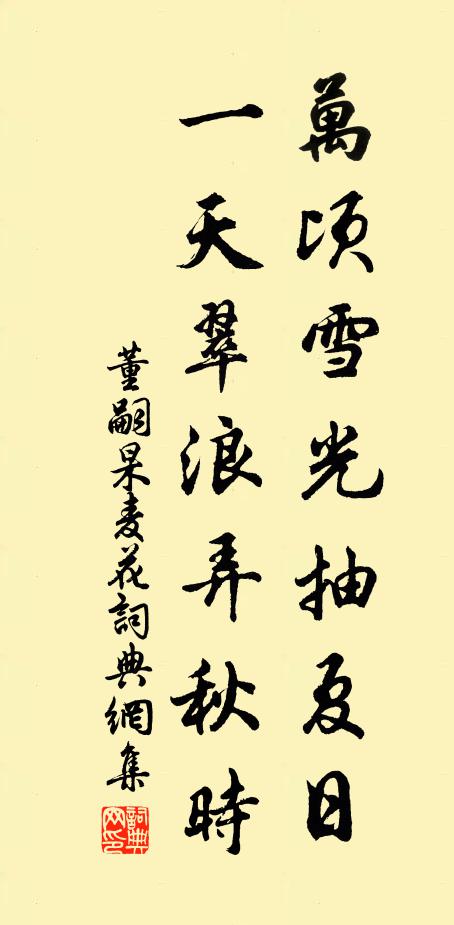 萬頃雪光抽夏日
一天翠浪弄秋時
董嗣杲麦花詞典網集
詞典网印